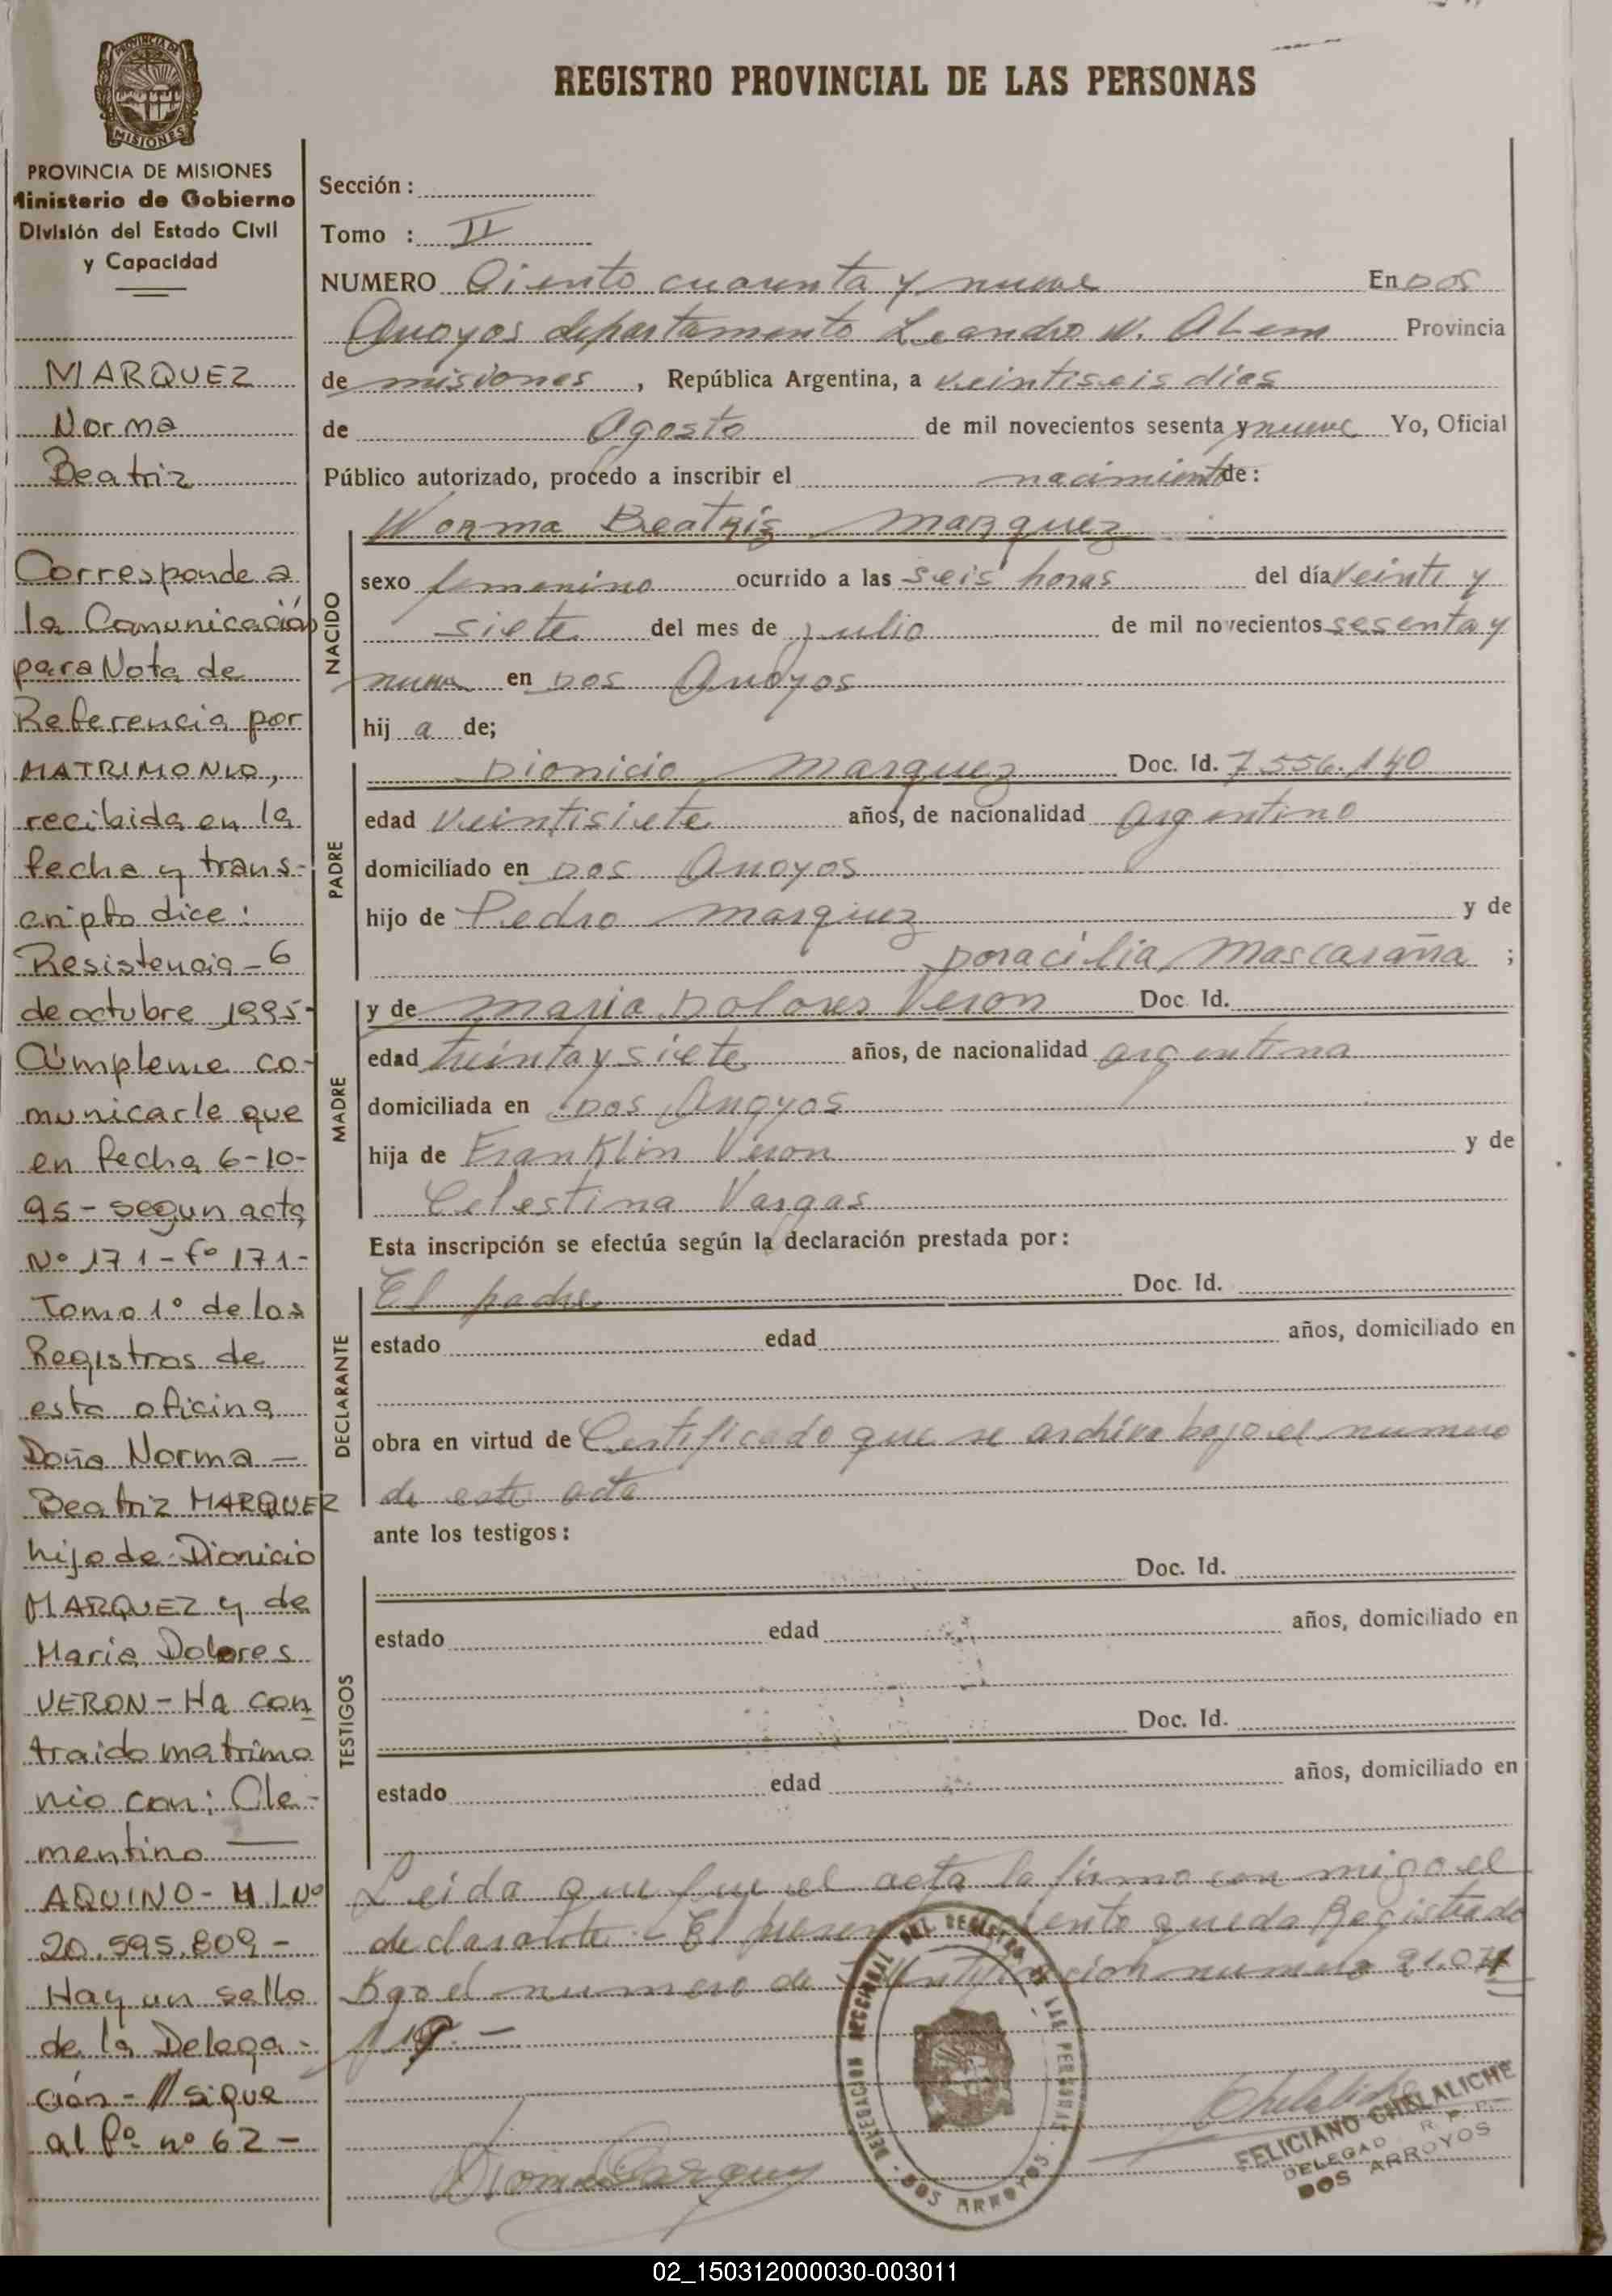 REGISTRO PROVINCIAL DE LAS PERSONAS
PROVINCIA DE MISIONES
PROVINCIA DE MISIONES
Ministerio de Gobierno
División del Estado Civil
y Capacidad
MARQUEZ
Norma
Beatriz
Corresponde a
la Comunicación
para Nota de
Referencia por
MATRIMONIO,
recibida en la
fecha y trans-
cripto dice:
Resistencia - 6
de octubre 1995-
Cúmpleme co-
municarle que
en fecha 6-10-
95 - segun acta
Nº 171 - fº 171-
Tomo 1º de los
Registros de
esta oficina
Doña Norma -
Beatriz MARQUEZ
hija de Dionicio
MARQUEZ y de
Maria Dolores
VERON - Ha con
traido matrimo
nio con: Cle-
mentino
AQUINO - M.I.Nº
20.595.809 -
Hay un sello
de la Delega-
ción - // sigue
al fº nº 62 -
Sección :
Tomo : II
NUMERO Ciento cuarenta y nueve En Dos
Arroyos departamento Leandro N. Alem Provincia
de misiones , República Argentina, a veintiseis dias
de Agosto de mil novecientos sesenta y nueve Yo, Oficial
Público autorizado, procedo a inscribir el nacimiento de :
Norma Beatriz Marquez
NACIDO
sexo femenino ocurrido a las seis horas del día veinte y
siete del mes de julio de mil novecientos sesenta y
nueve en Dos Arroyos
hij a de;
PADRE
Dionicio Marquez Doc. Id. 7.556.140
edad veintisiete años, de nacionalidad argentino
domiciliado en Dos Arroyos
hijo de Pedro Marquez y de
Doracilia Mascaraña ;
MADRE
y de maria Dolores Veron Doc. Id.
edad treinta y siete años, de nacionalidad argentina
domiciliada en Dos Arroyos
hija de Franklin Veron y de
Celestina Vargas
Esta inscripción se efectúa según la declaración prestada por :
DECLARANTE
El padre Doc. Id.
estado edad años, domiciliado en
obra en virtud de Certificado que se archiva bajo el numero
de este acta
ante los testigos :
TESTIGOS
Doc. Id.
estado edad años, domiciliado en
Doc. Id.
estado edad años, domiciliado en
Leida que fue el acta la firmo con migo el
declarante - El queda Registrado
el numero de numero 21.071
119.-
DELEGACION SECCIONAL DEL REGISTRO DE LAS PERSONAS
DOS ARROYOS
FELICIANO CHELALICHE
DELEGAD R. P. P.
DOS ARROYOS
02_150312000030-003011